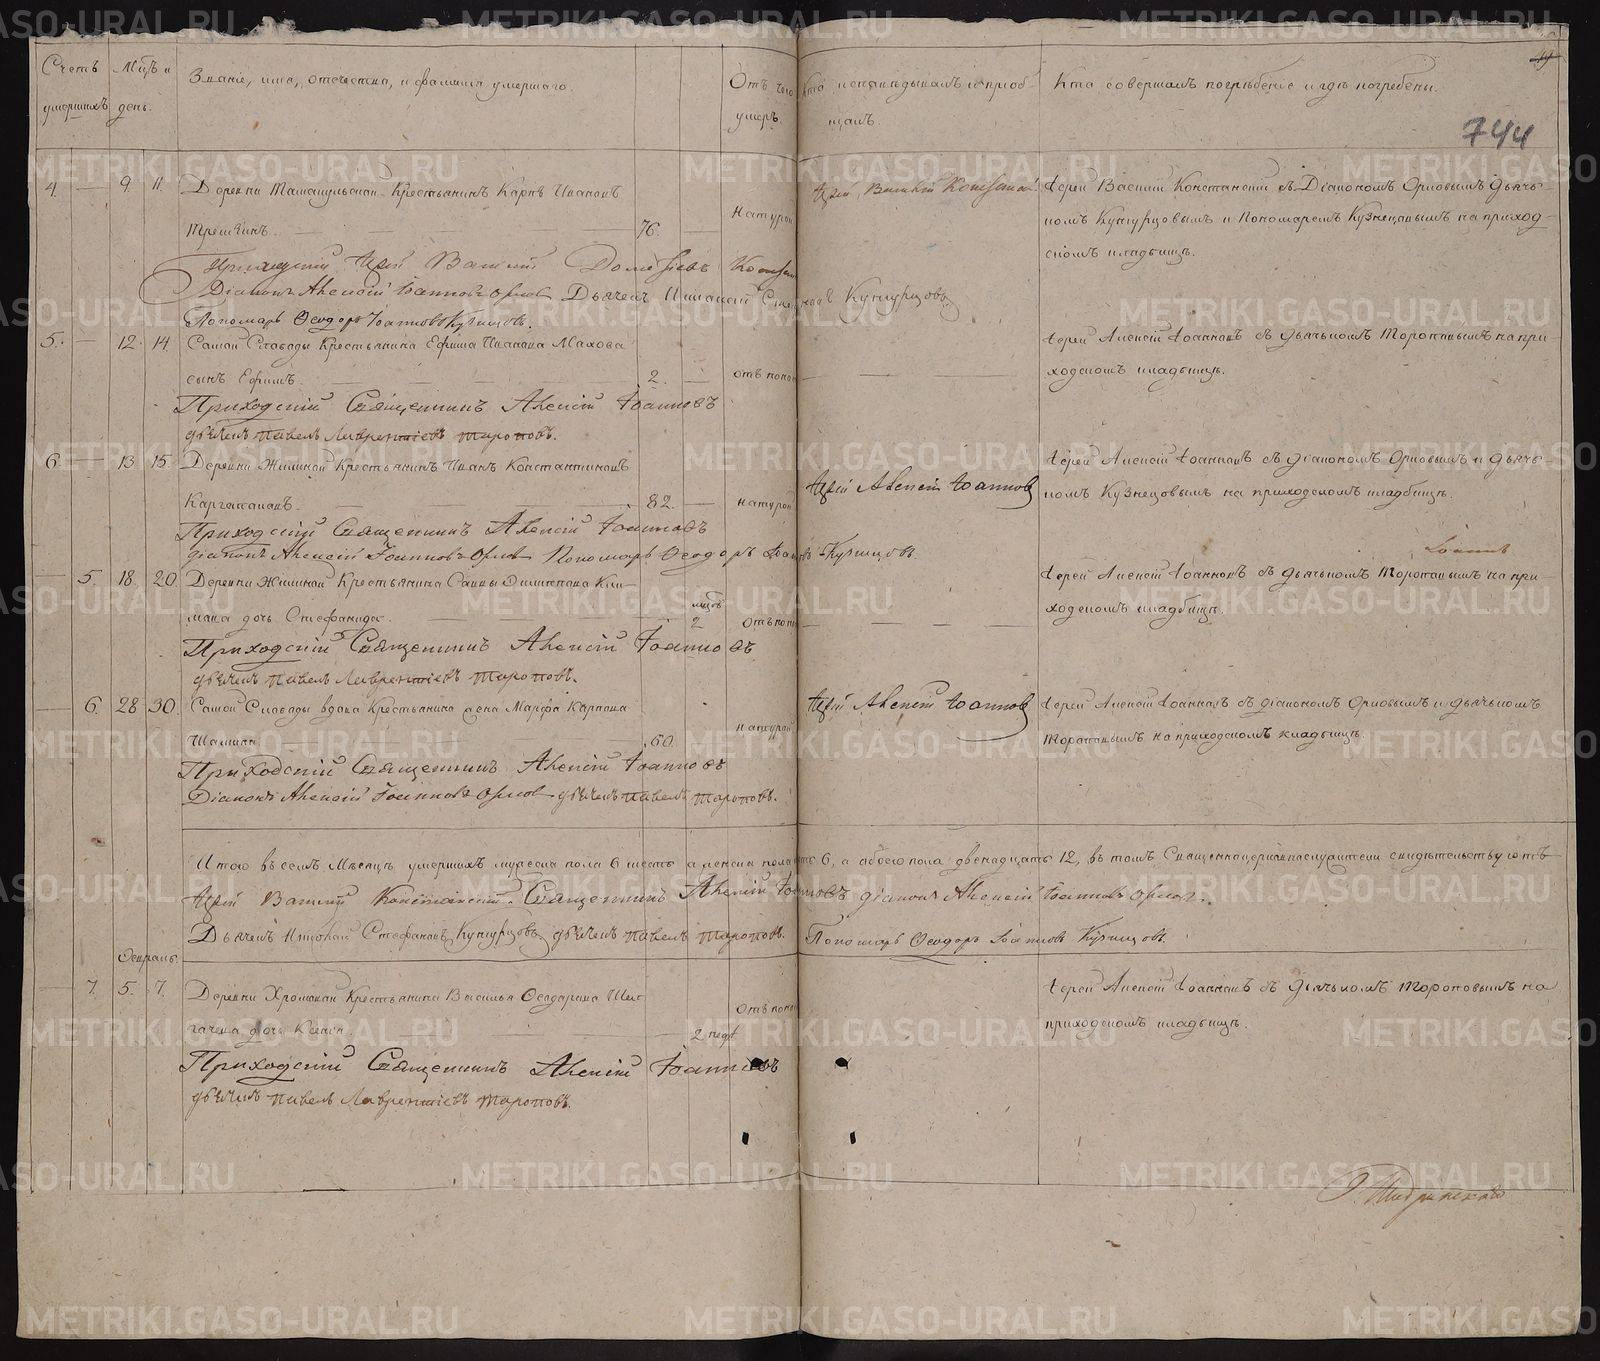 Счетъ умершихъ
Мцъ и день.
Званіе, имя, отечество, и фамилія умершаго.
Отъ чего умеръ.
Кто исповѣдывалъ и пріобщалъ.
Кто совершалъ погребеніе и гдѣ погребены.
49
744
4. — 9. 11.
Деревни Крестьянинъ Карпъ Ивановъ
76.
Натурой
Іерей Василій
Іерей Василій Констансовъ съ Діакономъ Орловымъ Дьяч-
комъ Кунгурцовымъ и Пономаремъ Кузнецовымъ на приход-
скомъ кладбищѣ.
Приходскій Іерей Василій
Діаконъ Алексій Іоанновъ Орловъ Дьячекъ Николай Стефановъ Кунгурцовъ
Пономарь Ѳеодоръ Іоанновъ Кузнецовъ.
5. — 12. 14
Самой Слободы Крестьянина Ефима Иванова Махова
сынъ Ефимъ.
2.
отъ поноса
Іерей Алексій Іоанновъ съ дьячкомъ Тороповымъ на при-
ходскомъ кладбищѣ.
Приходскій Священникъ Алексій Іоанновъ
дьячекъ павелъ Лаврентіевъ тороповъ.
6. — 13. 15.
Деревни Жилиной Крестьянинъ Иванъ Константиновъ
Каргаполовъ.
82.
натурой
Іерей Алексій Іоанновъ
Іерей Алексій Іоанновъ съ діакономъ Орловымъ и дьяч-
комъ Кузнецовымъ на приходскомъ кладбищѣ.
Приходскій Священникъ Алексій Іоанновъ
діаконъ Алексій Іоанновъ Орловъ Пономарь Ѳеодоръ Іоанновъ Кузнецовъ.
— 5. 18. 20.
Деревни Жилиной Крестьянина Саввы
дочь Стефанида.
мцов
2
отъ поноса
Іерей Алексій Іоанновъ съ дьячкомъ Тороповымъ на при-
ходскомъ кладбищѣ.
Приходскій Священникъ Алексій Іоанновъ
дьячекъ павелъ Лаврентіевъ тороповъ.
— 6. 28 30.
Самой Слободы вдова Крестьянина жена Марфа Карпова
60.
натурой
Іерей Алексій Іоанновъ
Іерей Алексій Іоанновъ съ діакономъ Орловымъ и дьячкомъ
Тороповымъ на приходскомъ кладбищѣ.
Приходскій Священникъ Алексій Іоанновъ
Діаконъ Алексій Іоанновъ Орловъ дьячекъ павелъ тороповъ.
Итого въ семъ Мѣсяцѣ умершихъ мужеска пола 6 шесть а женска пола шесть 6, а обоего пола двенадцать 12, въ томъ Священноцерковнослужители свидѣтельствуютъ
Іерей Василій Священникъ Алексій Іоанновъ діаконъ Алексій Іоанновъ Орловъ.
Дьячекъ Николай Стефановъ Кунгурцовъ дьячекъ павелъ тороповъ. Пономарь Ѳеодоръ Іоанновъ Кузнецовъ.
Февраль.
— 7. 5. 7.
Деревни Крестьянина Василья Ѳеодорова
дочь Ксенія.
2 нед
отъ поноса
Іерей Алексій Іоанновъ съ дьячкомъ Тороповымъ на
приходскомъ кладбищѣ.
Приходскій Священникъ Алексій Іоанновъ
дьячекъ павелъ Лаврентіевъ тороповъ.
METRIKI.GASO-URAL.RU